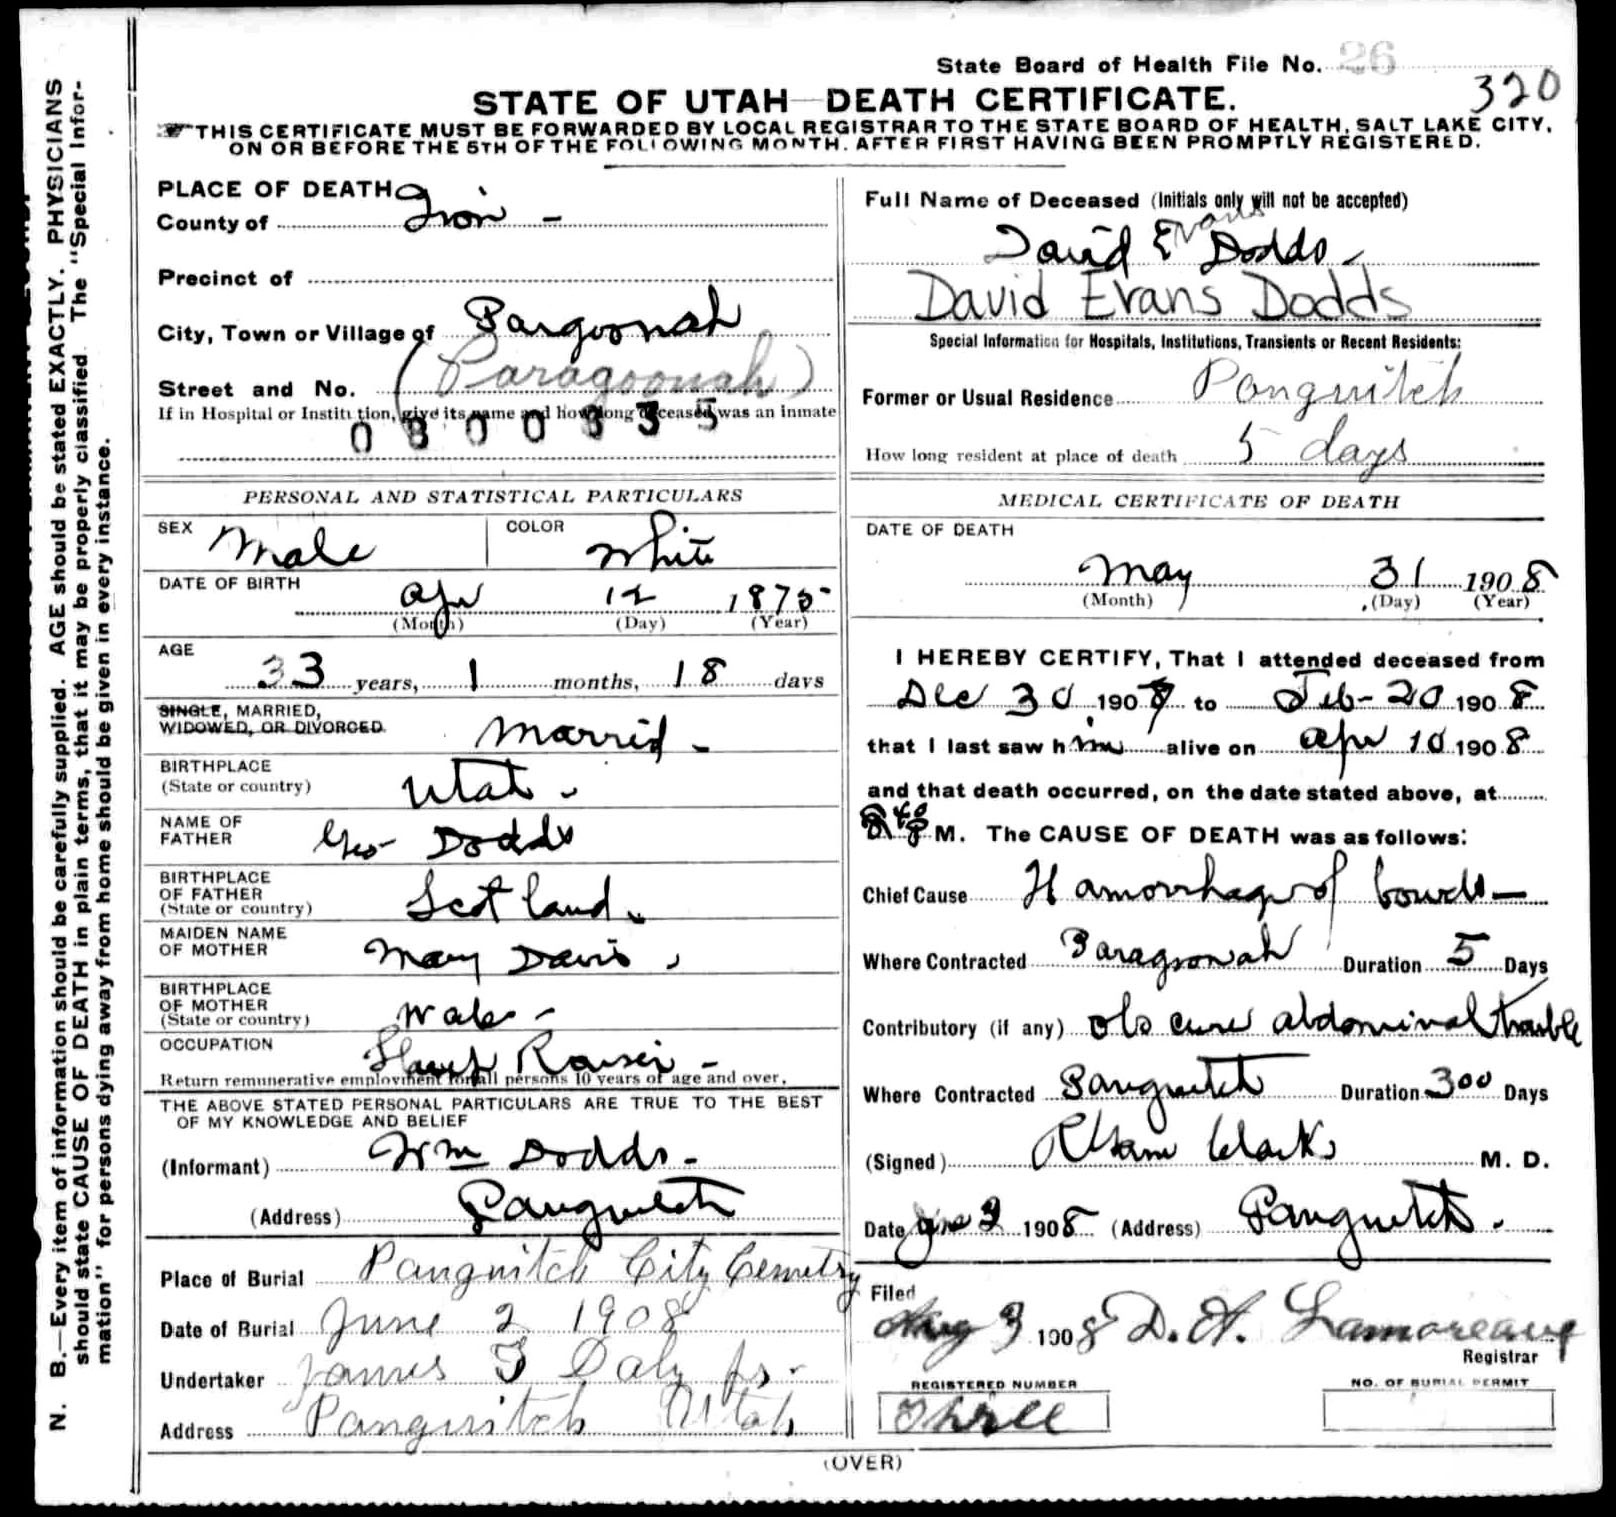 State Board of Health File No. 26
320
STATE OF UTAH—DEATH CERTIFICATE.
THIS CERTIFICATE MUST BE FORWARDED BY LOCAL REGISTRAR TO THE STATE BOARD OF HEALTH, SALT LAKE CITY,
ON OR BEFORE THE 5TH OF THE FOLLOWING MONTH. AFTER FIRST HAVING BEEN PROMPTLY REGISTERED.
PLACE OF DEATH
County of Iron -
Precinct of
City, Town or Village of Pargoonah
(Paragoonah)
Street and No.
If in Hospital or Institution, give its name and how long deceased was an inmate
0300335
PERSONAL AND STATISTICAL PARTICULARS
SEX Male COLOR White
DATE OF BIRTH Apr 12 1875
(Month) (Day) (Year)
AGE 33 years, 1 months, 18 days
SINGLE, MARRIED,
WIDOWED, OR DIVORCED. Married -
BIRTHPLACE
(State or country) Utah -
NAME OF
FATHER Geo Dodds
BIRTHPLACE
OF FATHER
(State or country) Scotland
MAIDEN NAME
OF MOTHER Mary Davis
BIRTHPLACE
OF MOTHER
(State or country) Wales -
OCCUPATION Sheep Raiser -
Return remunerative employment for all persons 10 years of age and over.
THE ABOVE STATED PERSONAL PARTICULARS ARE TRUE TO THE BEST
OF MY KNOWLEDGE AND BELIEF
(Informant) Wm Dodds -
(Address) Panguitch
Place of Burial Panguitch City Cemetry
Date of Burial June 2 1908
Undertaker James T Daly Jr.
Address Panguitch Utah
Full Name of Deceased (Initials only will not be accepted)
Evans
David E Dodds -
David Evans Dodds
Special Information for Hospitals, Institutions, Transients or Recent Residents:
Former or Usual Residence Panguitch
How long resident at place of death 5 days
MEDICAL CERTIFICATE OF DEATH
DATE OF DEATH
May 31 1908
(Month) (Day) (Year)
I HEREBY CERTIFY, That I attended deceased from
Dec 30 1907 to Feb - 20 1908
that I last saw him alive on Apr 10 1908
and that death occurred, on the date stated above, at
M. The CAUSE OF DEATH was as follows:
Chief Cause Hamorrhage of bowels -
Where Contracted Paragoonah Duration 5 Days
Contributory (if any) obscure abdominal trouble
Where Contracted Panguitch Duration 300 Days
(Signed) Clark M. D.
Date June 2 1908 (Address) Panguitch.
Filed
Aug 3 1908 D. A. Lamoreaux
Registrar
REGISTERED NUMBER
Three
NO. OF BURIAL PERMIT
(OVER)
N. B.—Every item of information should be carefully supplied. AGE should be stated EXACTLY. PHYSICIANS
should state CAUSE OF DEATH in plain terms, that it may be properly classified. The "Special Infor-
mation" for persons dying away from home should be given in every instance.